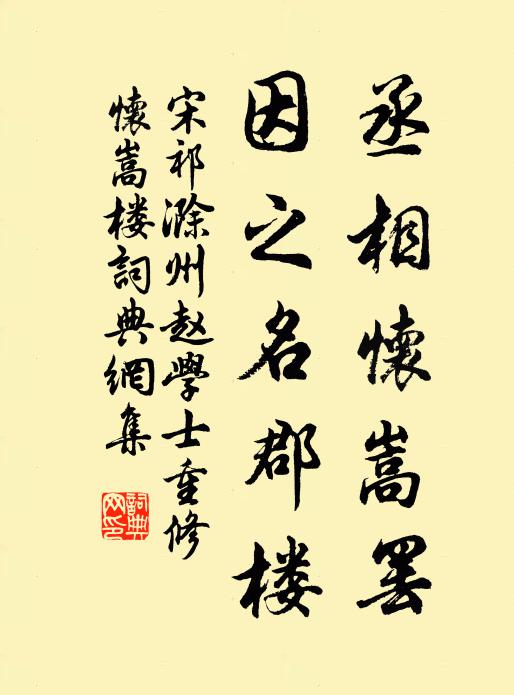 丞相懷嵩罢
因之名郡楼
宋祁滁州赵學士重修
懷嵩楼詞典網集
詞典網印